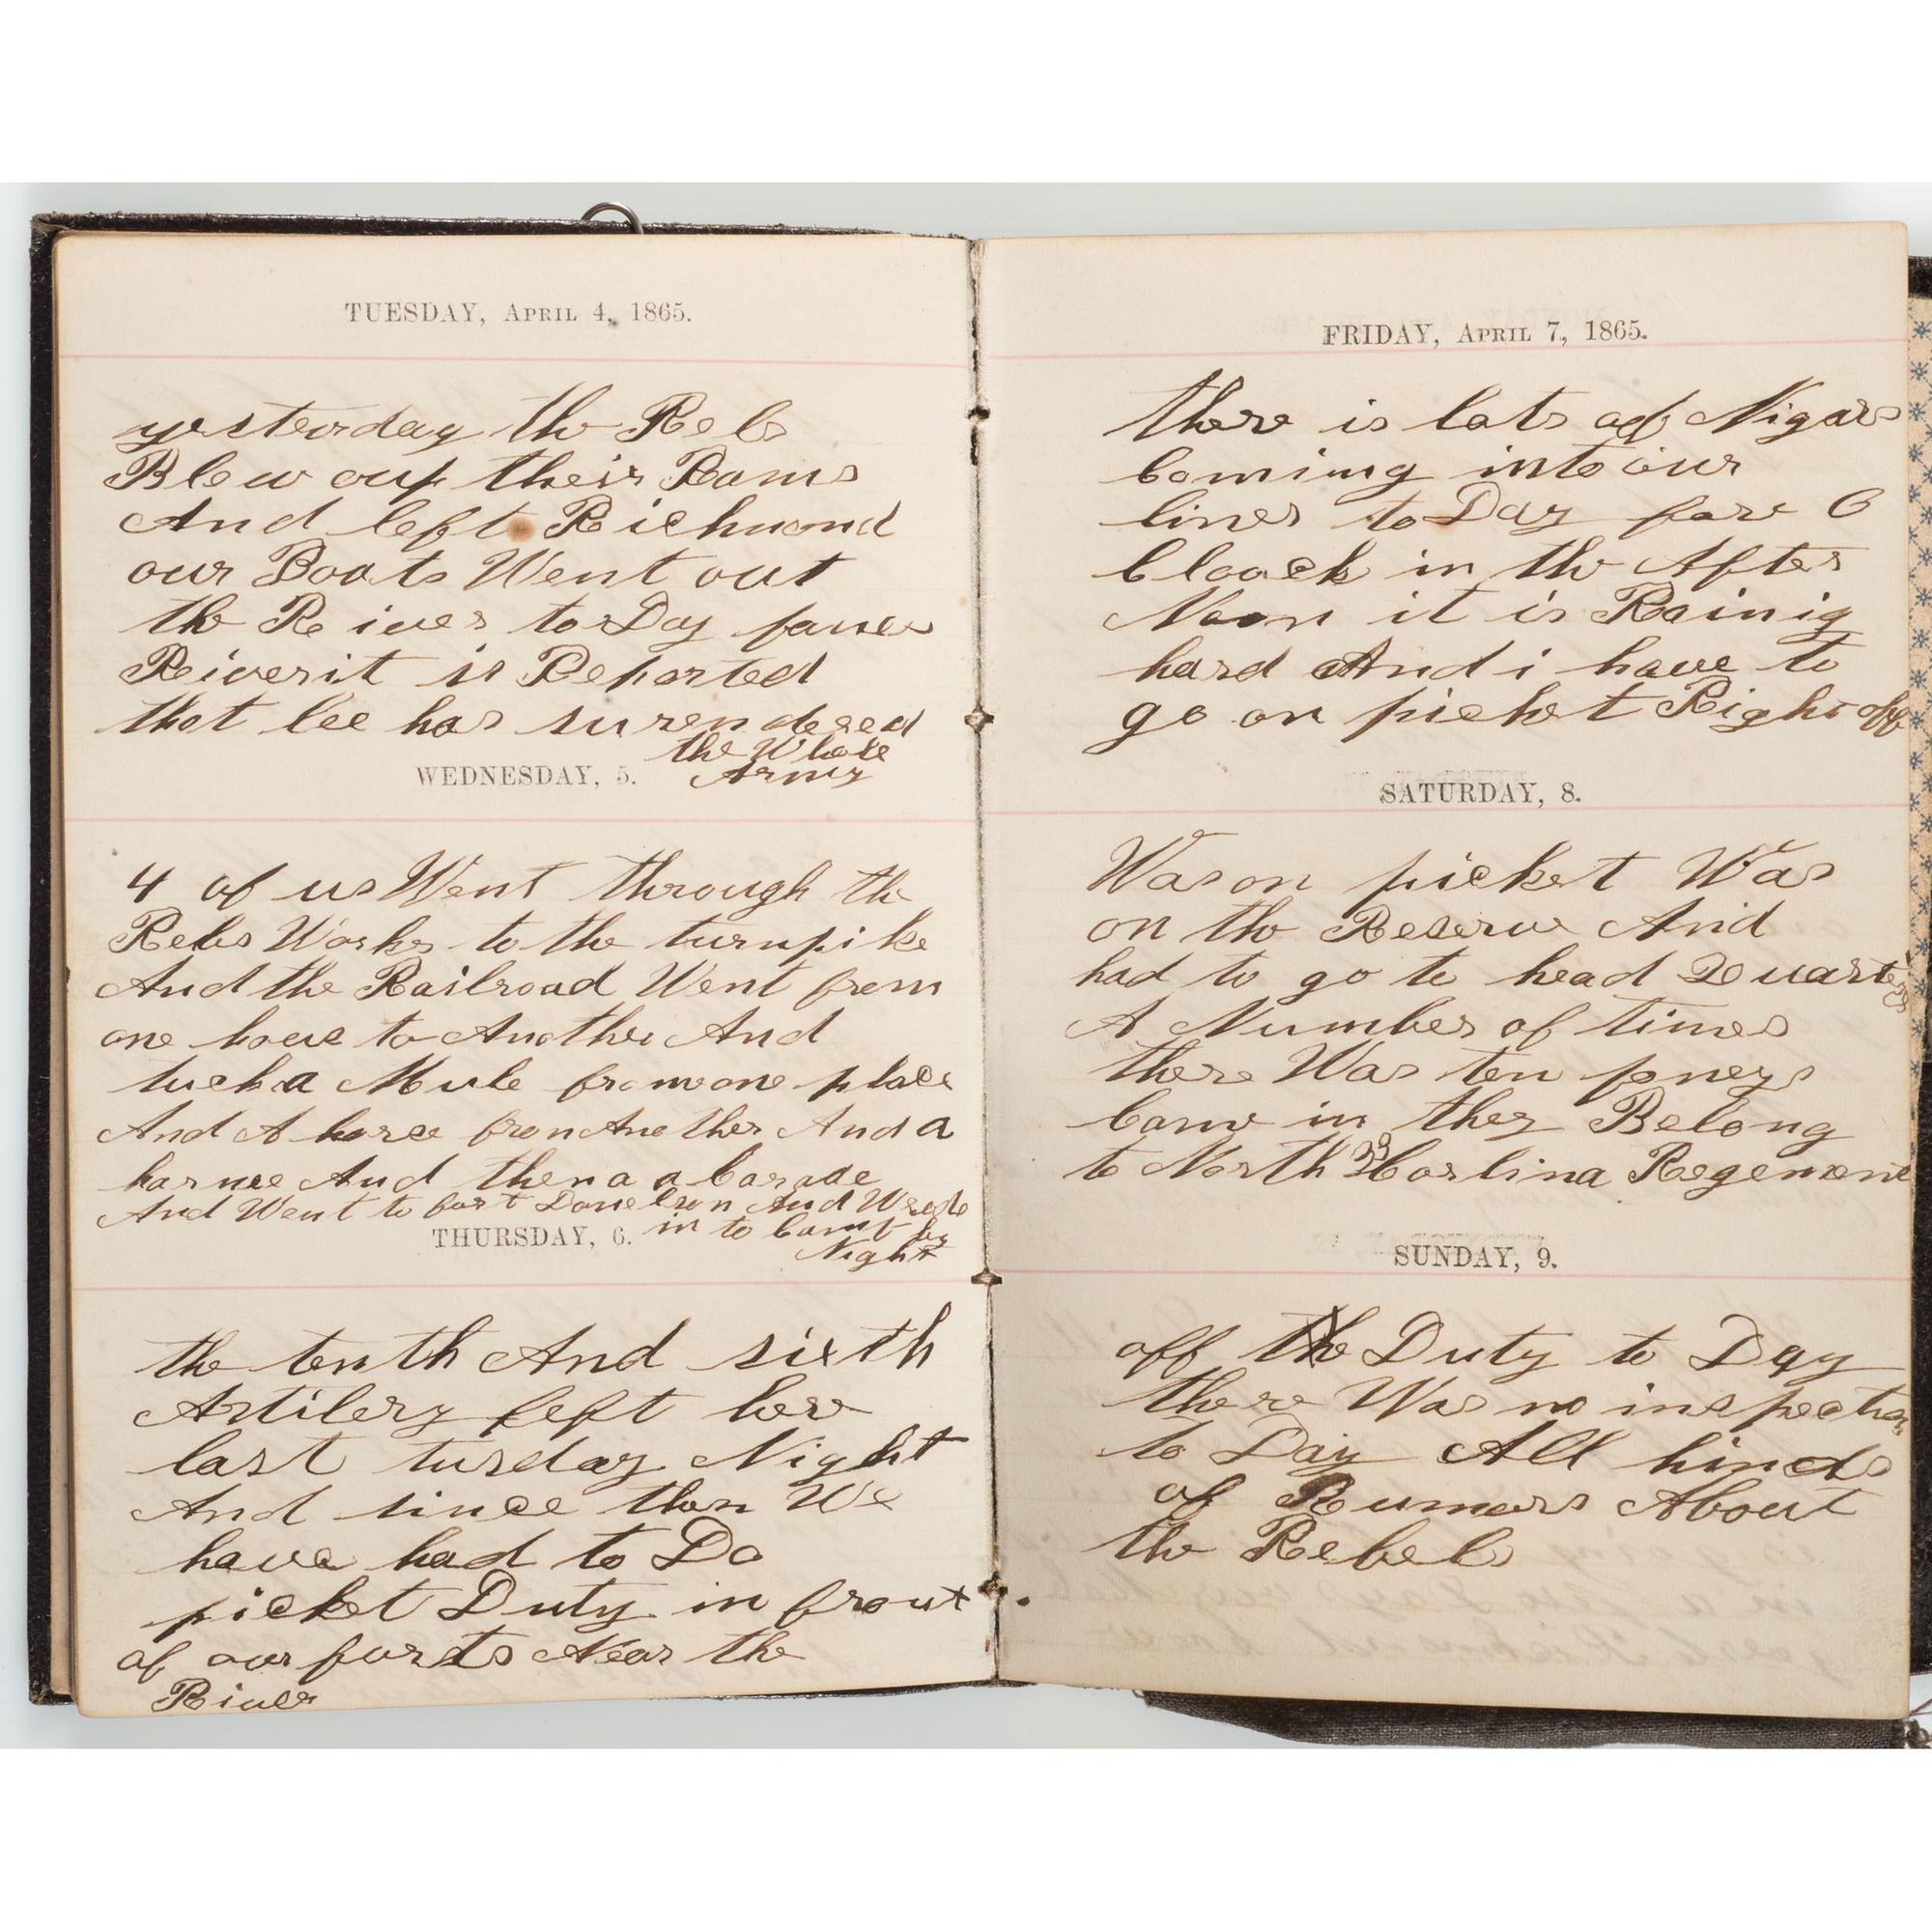 TUESDAY, APRIL 4, 1865.
yesterday the Rebs
Blew oup their Rams
And left Richmond
our Boats Went out
the Reiver to Day
Reiver it is Reported
that lee has surendered
the Whole
Army
WEDNESDAY, 5.
4 of us Went through the
Rebs Works to the turnpike
And the Railroad Went from
one house to Another And
tuck a Mule from one place
And A horse from Another And a
harnee And then a a Carade
And Went to fort Donelson And
in to Camp by
Night
THURSDAY, 6.
the tenth And sixth
Artilery left here
last tusday Night
And since then We
have had to Do
picket Duty in front
of our forts Near the
River
FRIDAY, APRIL 7, 1865.
there is lots off Nigars
Coming into our
lines to Day fore 6
Cloock in the After
Noon it is Rainig
hard And i have to
go on picket Right off
SATURDAY, 8.
Was on picket Was
on the Reserve And
had to go to head Quarters
A Number of times
there Was ten
Came in they Belong
to North Carlina Regement
SUNDAY, 9.
off the Duty to Day
there Was no inspection
to Day All kinds
of Rumors About
the Rebels